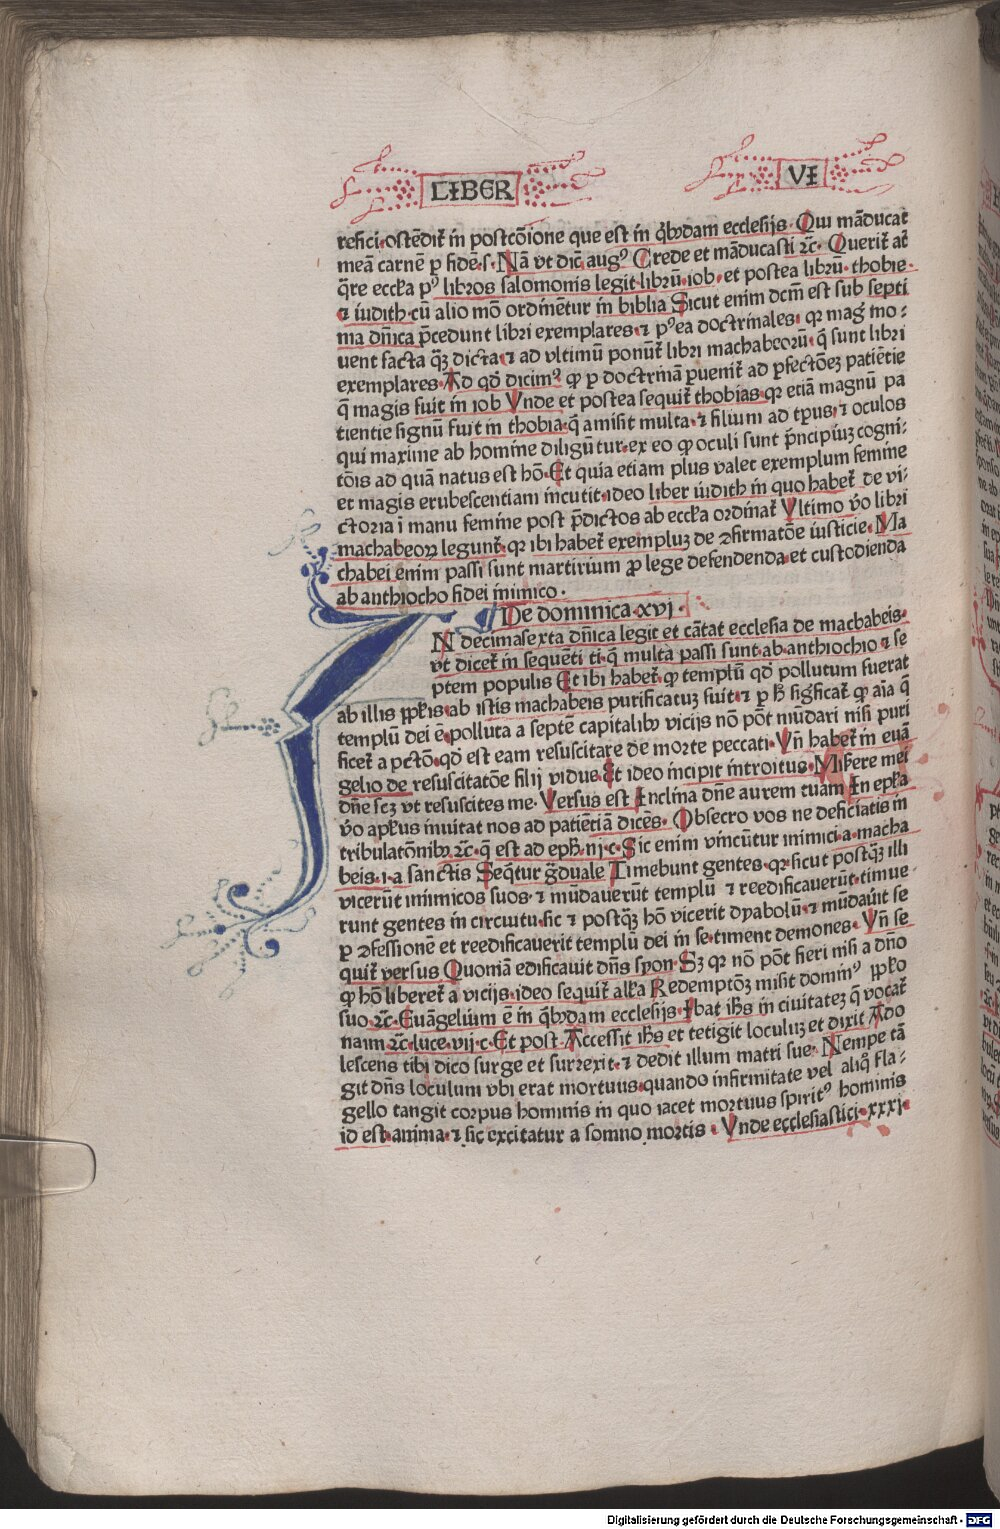 LIBER VI
refici·ostēdit᷑ in postcōione que est in q̄ƀꝰdam ecclesijs· Qui māducat
meā carnē ꝑ fidē·s· Nā vt dic̄ augꝰ Crede et māducasti ⁊c̄· Querit᷑ at̄
q̄re eccƚia pꝰ libros salomonis legit librū·iob·et postea librū·thobie·
⁊ iudith·cū alio mō ordinētur in biblia Sicut enim dcm̄ est sub septi
ma dn̄ica p̄cedunt libri exemplares·⁊ pꝰea doctrinales·qꝛ maḡ mo⸗
uent facta q̄ꝫ dicta·⁊ ad vltimū ponūt᷑ libri machabeorū·q̄ sunt libri
exemplares· Ad qd̄ dicimꝰ ꝙ ꝑ doctrinā ꝑuenit᷑ ad ꝑfectōeꝫ patiētie
q̄ magis fuit in iob Vnde et postea sequit᷑ thobias·qꝛ etiā magnū pa
tientie signū fuit in thobia·q̄ amisit multa·⁊ filium ad tp̄us·⁊ oculos
qui maxime ab homine diligūtur·ex eo ꝙ oculi sunt p̄ncipiuꝫ cogni⸗
tōis ad quā natus est hō· Et quia etiam plus valet exemplum femine
et magis erubescentiam incutit·ideo liber iudith in quo habet᷑ de vi⸗
ctoria i manu femine post p̄dictos ab eccƚia ordinat᷑ Vltimo v̄o libri
machabeoꝝ legunt᷑·qꝛ ibi habet᷑ exempluꝫ de ꝯfirmatōe iusticie· Ma
chabei enim passi sunt martirium ꝓ lege defendenda·et custodienda
ab anthiocho fidei inimico·
De dominica·xvj·
N decimasexta dn̄ica legit et cātat ecclesia de machabeis·
vt dicet᷑ in sequēti ti·q̄ multa passi sunt·ab·anthiochio·⁊ se
ptem populis Et ibi habet᷑·ꝙ templū qd̄ pollutum fuerat
ab illis ꝓpƚis·ab istis machabeis purificatuꝫ fuit·⁊ ꝑ h̄ sig̅ficat᷑ ꝙ aīa q̄
templū dei ē·polluta a septē capitalibꝰ vicijs nō pōt mūdari nisi puri
ficet᷑ a pctō·qd̄ est eam resuscitare de morte peccati· Vn̄ habet᷑ in euā
gelio de resuscitatōe filij vidue· Et ideo incipit introitus· Miserere mei
dn̄e scꝫ vt resuscites me· Versus est Inclina dn̄e aurem tuam In epƚa
v̄o apƚus inuitat nos ad patiētiā dicēs· Obsecro vos ne deficiatis in
tribulatōnibꝰ ⁊c̄·q̄ est ad eph̄·iij·c· Sic enim vincūtur inimici·a·macha
beis·i·a sanctis Seq̄tur g̅duale Timebunt gentes·qꝛ sicut postq̄ꝫ illi
vicerūt inimicos suos·⁊ mūdauerūt templū ⁊ reedificauerūt·timue⸗
runt gentes in circuitu·sic ⁊ postq̄ꝫ hō vicerit dyabolū·⁊ mūdau̅it se
ꝑ ꝯfessionē et reedificauerit templū dei in se·timent demones· Vn̄ se
quit᷑ versus Quoniā edificauit dn̄s syon· Sꝫ qꝛ nō pōt fieri nisi a dn̄o
ꝙ hō liberet᷑ a vicijs·ideo sequit᷑ alƚa Redemptōꝫ misit dominꝰ ꝓpƚo
suo ⁊c̄· Euāgelium ē in q̄ƀꝰdam ecclesijs· Ibat ih̄s in ciuitateꝫ q̄ vocat᷑
naim ⁊c̄·luce·vij·c· Et post· Accessit ih̄s et tetigit loculuꝫ et dixit Ado
lescens tibi dico surge et surrexit·⁊ dedit illum matri sue· Nempe tā
git dn̄s loculum vbi erat mortuus·quando infirmitate vel aliq̄ fla⸗
gello tangit corpus hominis in quo iacet mortuus spiritꝰ hominis
id est·anima·⁊ sic excitatur a somno mortis· Vnde ecclesiastici·xxxj·
Digitalisierung gefördert durch die Deutsche Forschungsgemeinschaft - DFG